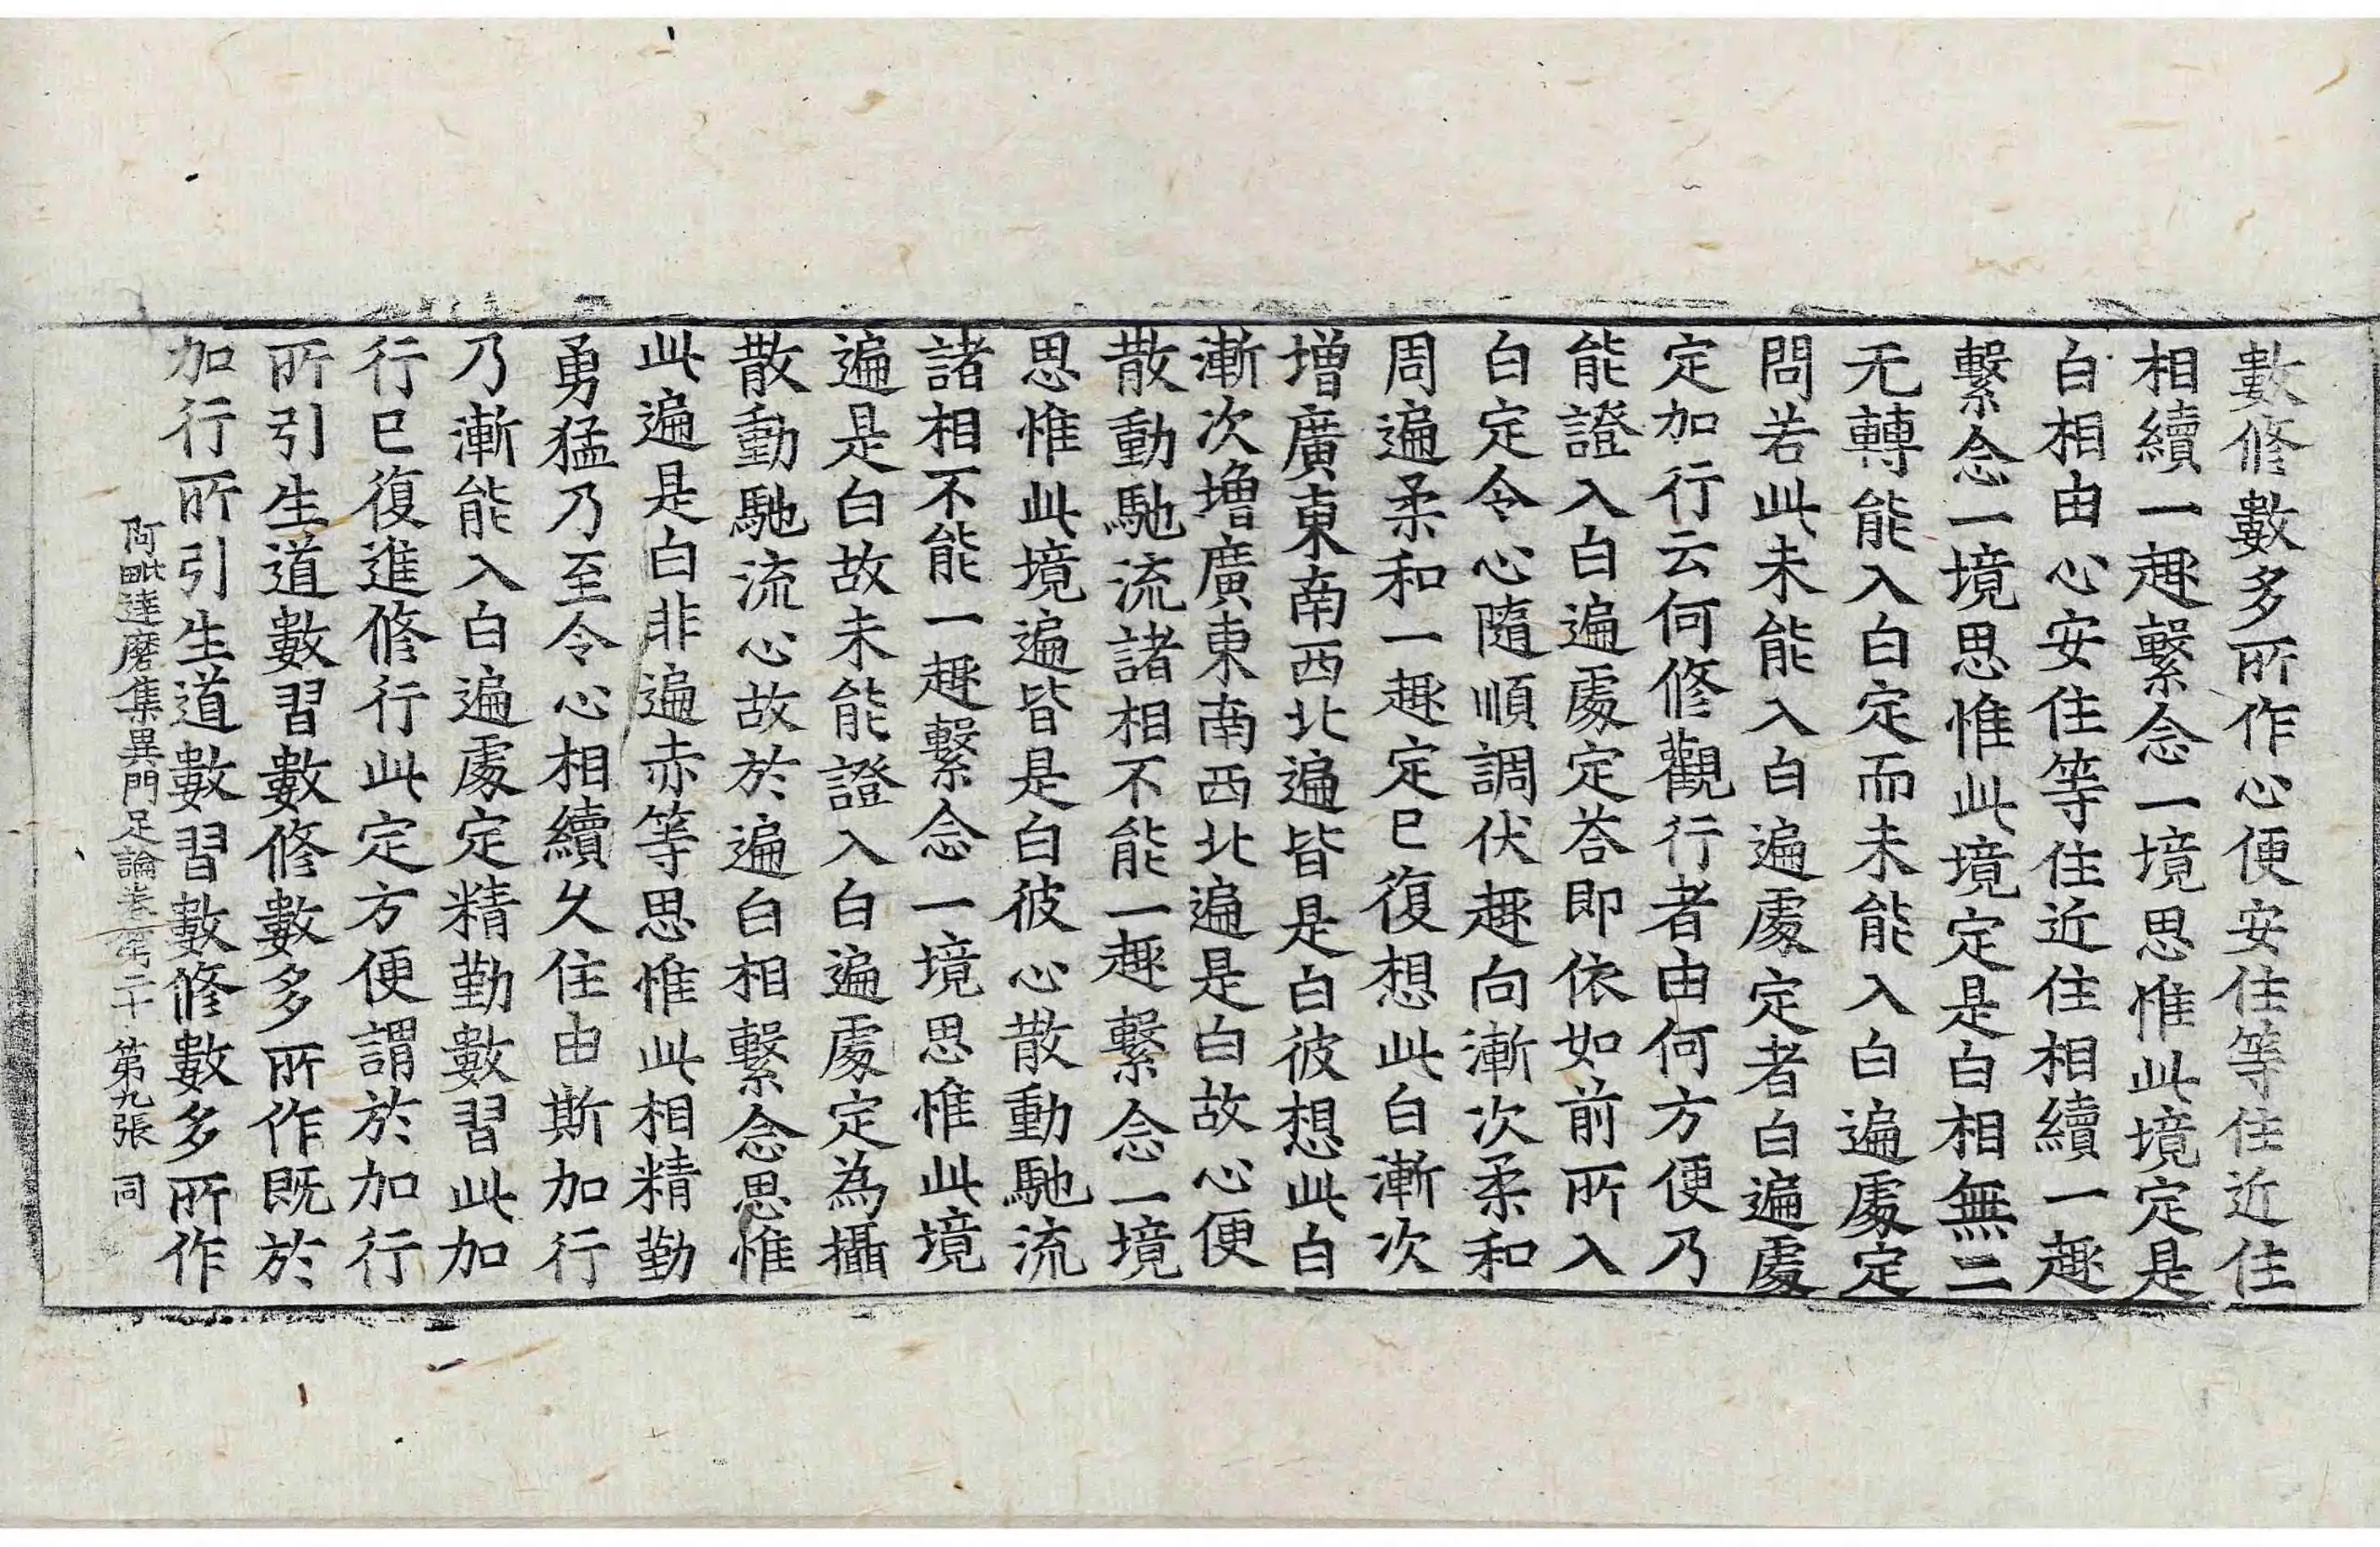 數修數多所作心便安住等住近住
相續一趣繫念一境思惟此境定是
白相由心安住等住近住相續一趣
繫念一境思惟此境定是白相無二
无轉能入白定而未能入白遍處定
問若此未能入白遍處定者白遍處
定加行云何修觀行者由何方便乃
能證入白遍處定荅即依如前所入
白定令心隨順調伏趣向漸次柔和
周遍柔和一趣定已復想此白漸次
增廣東南西北遍皆是白彼想此白
漸次增廣東南西北遍是白故心便
散動馳流諸相不能一趣繫念一境
思惟此境遍皆是白彼心散動馳流
諸相不能一趣繫念一境思惟此境
遍是白故未能證入白遍處定為攝
散動馳流心故於遍白相繫念思惟
此遍是白非遍赤等思惟此相精勤
勇猛乃至令心相續久住由斯加行
乃漸能入白遍處定精勤數習此加
行已復進修行此定方便謂於加行
所引生道數習數修數多所作既於
加行所引生道數習數修數多所作
阿毗達磨集異門足論卷第二十 第九張 同